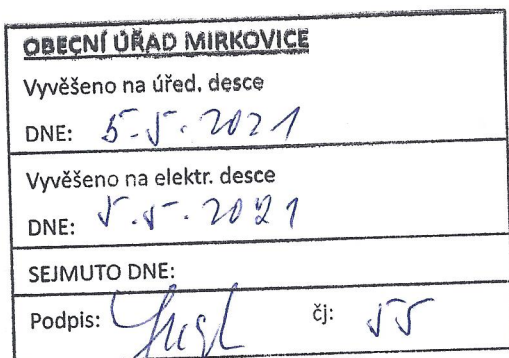 OBECNÍ ÚŘAD MIRKOVICE
Vyvěšeno na úřed. desce
DNE: 5.5.2021
Vyvěšeno na elektr. desce
DNE: 5.5.2021
SEJMUTO DNE:
Podpis: čj: 55